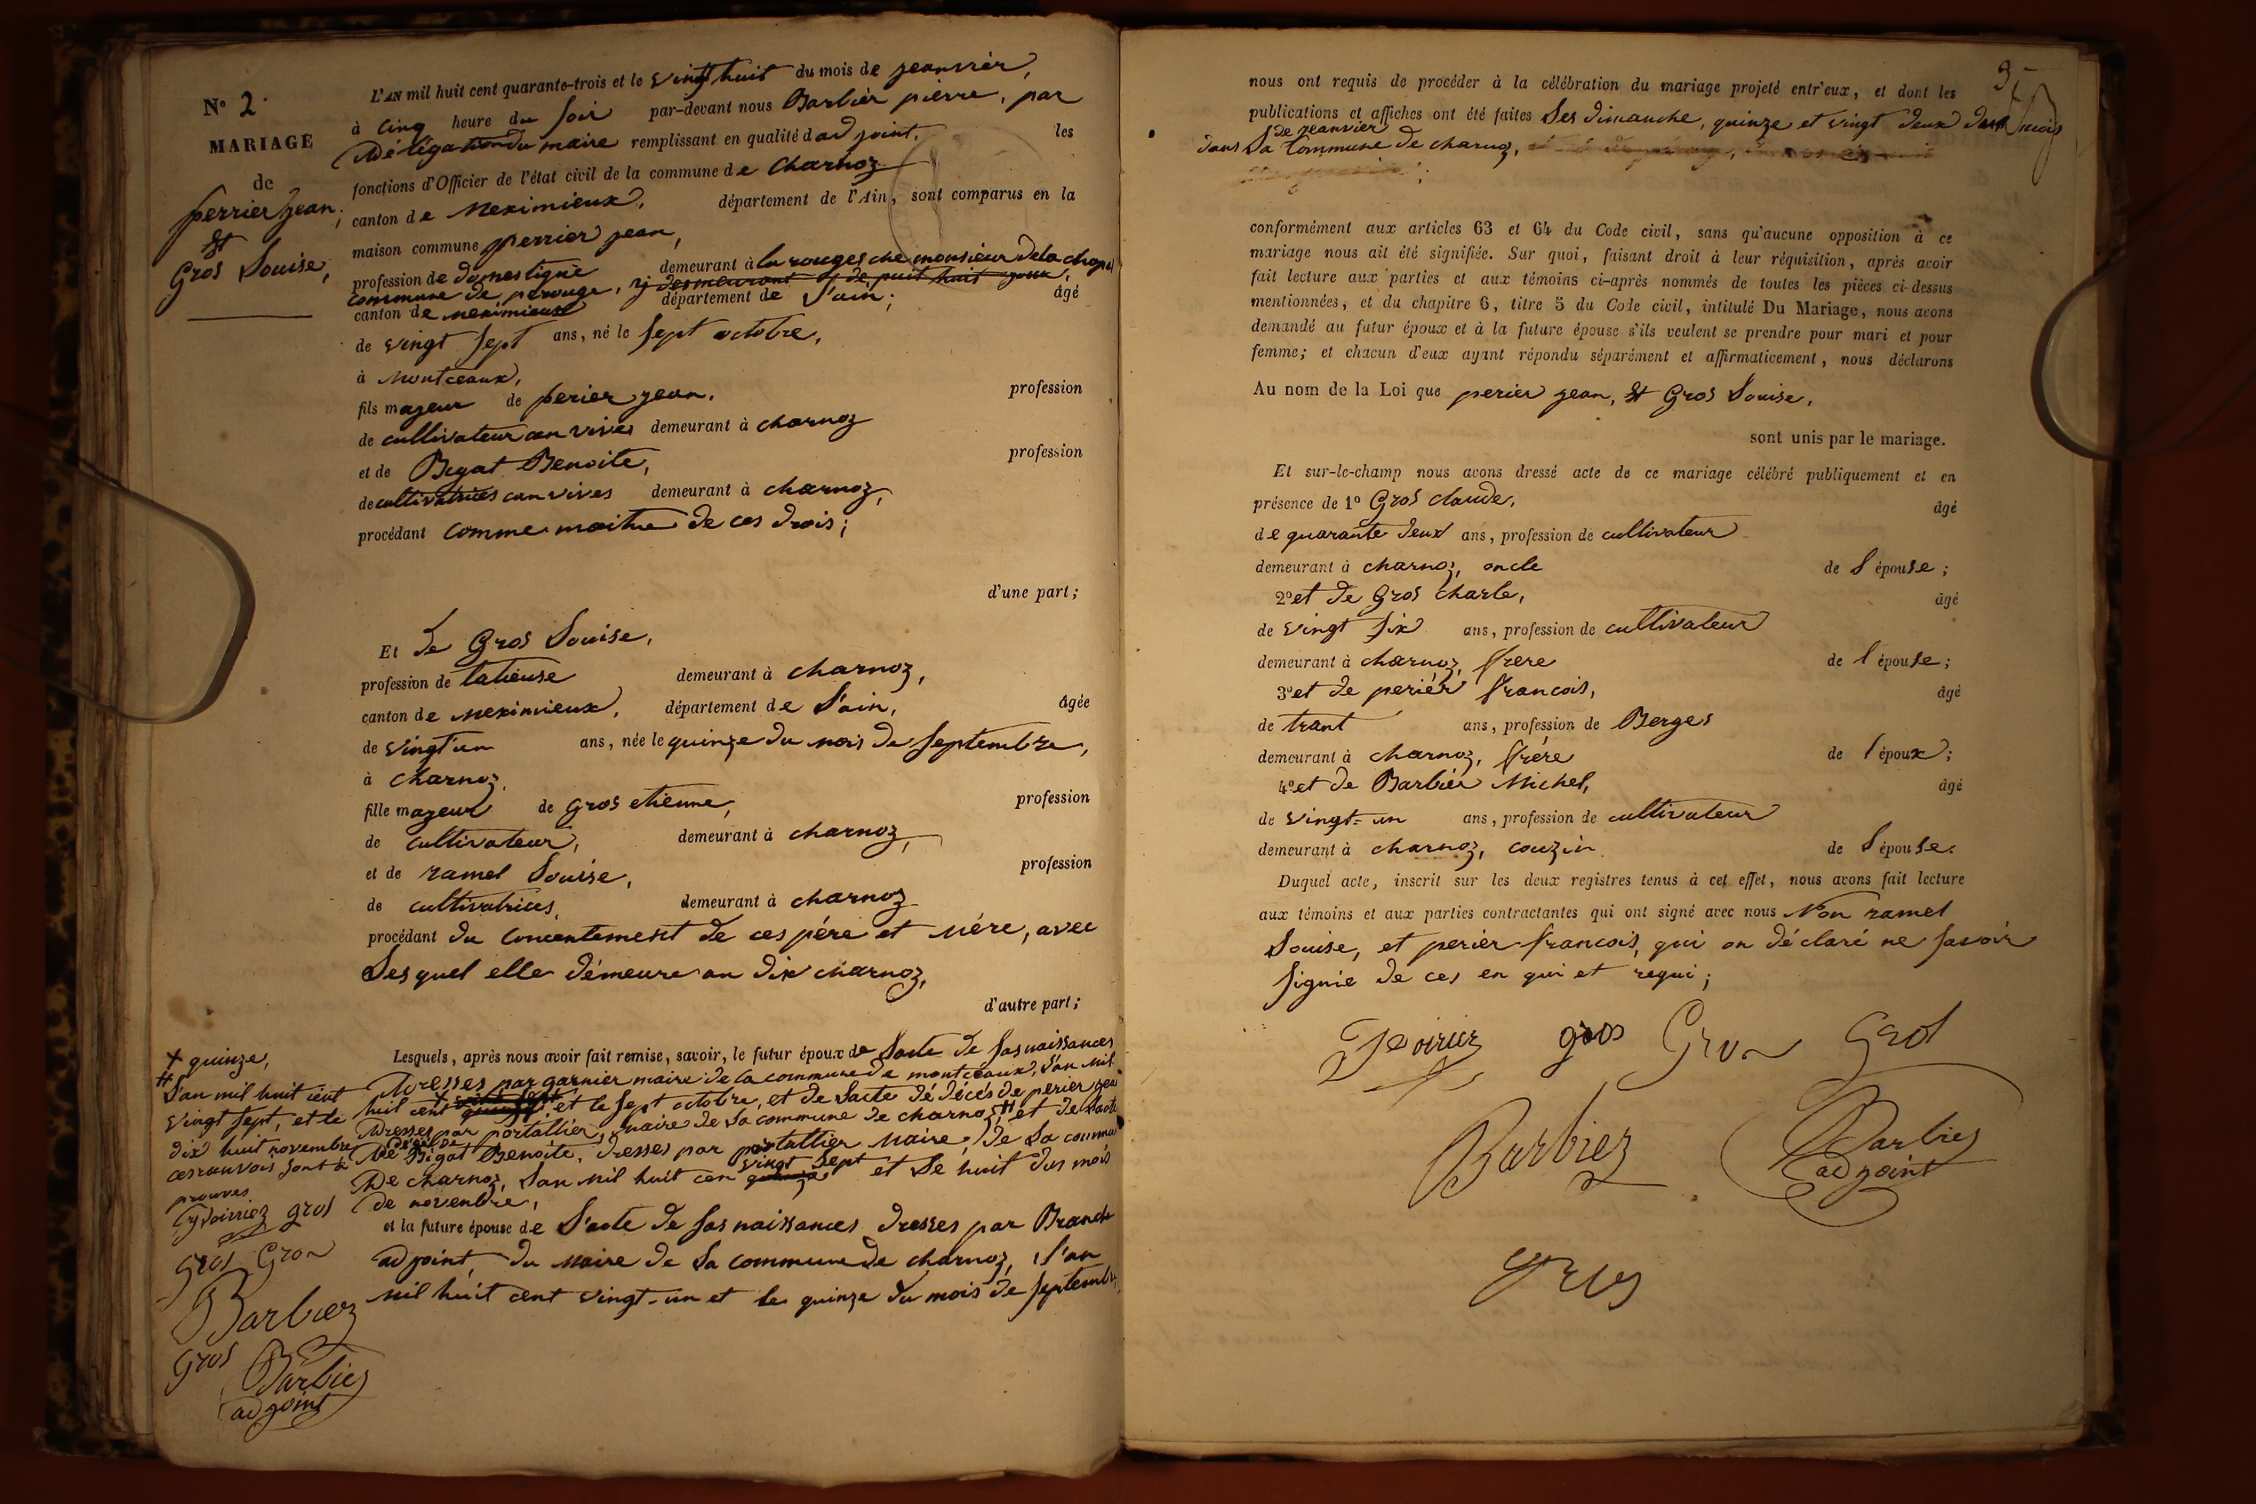 N° 2.
MARIAGE
de
perrier jean,
Et
Gros Louise,
L'AN mil huit cent quarante-trois et le vingt huit du mois de jeanvier,
à cinq heure du soir par-devant nous Barbier pierre, par
Déligation du maire remplissant en qualité d adjoint, les
fonctions d'Officier de l'état civil de la commune de charnoz
canton de meximieux, département de l'Ain, sont comparus en la
maison commune perrier jean,
profession de domestique demeurant à la rouges che monsieur dela chape
commune de perouge, rj desmeurant et de puit huit jour,
canton de meximieux département de l'ain; âgé
de vingt sept ans, né le sept octobre,
à Montceaux,
fils majeur de perier jean, profession
de cultivateur an vives demeurant à charnoz
et de Begat Benoite, profession
de cultivatrices can vives demeurant à charnoz,
procédant comme maitre de ces drois;
d'une part;
Et de Gros Louise,
profession de talieuse demeurant à charnoz,
canton de meximieux, département de l'ain, âgée
de vingt'un ans, née le quinze du mois de septembre,
à charnoz,
fille majeur de gros etienne, profession
de cultivateur, demeurant à charnoz,
et de ramel Louise, profession
de cultivatrices, demeurant à charnoz
procédant du concentement de ces pére et mére, avec
Lesquel elle démeure an dix charnoz,
d'autre part;
Lesquels, après nous avoir fait remise, savoir, le futur époux de l'acte de sas naissances
Dresses par garnier maire de la commune de montceaux, l'an mil
huit cent et le sept octobre, et de l'acte dé décés de perier jean
Dresses par portallier, maire de la commune de charnoz, # et de l'acte
décé de Bigat Benoite, dresses par portallier maire, de la commune
De charnoz, l'an mil huit cen quinze vingt sept et le huit du mois
de novembre,
et la future épouse de l'acte de sas naissances dresses par Branch
adjoint, du maire de la commune de charnoz, l'an
mil huit cent vingt-un et le quinze du mois de septembre
+ quinze,
# l'an mil huit cent
vingt sept, et le
dix huit novembre
ces ranvois sont à
prouves
Poirier gros
gros Gron
Barbier
gros
Barbier
adjoint
nous ont requis de procéder à la célébration du mariage projeté entr'eux, et dont les
publications et affiches ont été faites Les dimanche, quinze et vingt deux du mois
de jeanvier
dans La Commune de charnoz,
conformément aux articles 63 et 64 du Code civil, sans qu'aucune opposition à ce
mariage nous ait été signifiée. Sur quoi, faisant droit à leur réquisition, après avoir
fait lecture aux parties et aux témoins ci-après nommés de toutes les pièces ci-dessus
mentionnées, et du chapitre 6, titre 5 du Code civil, intitulé Du Mariage, nous avons
demandé au futur époux et à la future épouse s'ils veulent se prendre pour mari et pour
femme; et chacun d'eux ayant répondu séparément et affirmativement, nous déclarons
Au nom de la Loi que perier jean, Et Gros Louise,
sont unis par le mariage.
Et sur-le-champ nous avons dressé acte de ce mariage célébré publiquement et en
présence de 1° Gros claude, âgé
de quarante deux ans, profession de cultivateur
demeurant à charnoz, oncle de l'épouse;
2° et de Gros Charle, âgé
de vingt six ans, profession de cultivateur
demeurant à charnoz, frere de l'épouse;
3° et de periér francois, âgé
de trant ans, profession de Berges
demeurant à charnoz, frére de l'époux;
4° et de Barbier Michel, âgé
de vingt-un ans, profession de cultivateur
demeurant à charnoz, couzin de l'épouse.
Duquel acte, inscrit sur les deux registres tenus à cet effet, nous avons fait lecture
aux témoins et aux parties contractantes qui ont signé avec nous Non ramel
Louise, et perier francois, qui on déclaré ne savoir
signie de ces en qui et requi;
Poirier gros Gron Grol
Barbiez Barbier
adjoint
gros